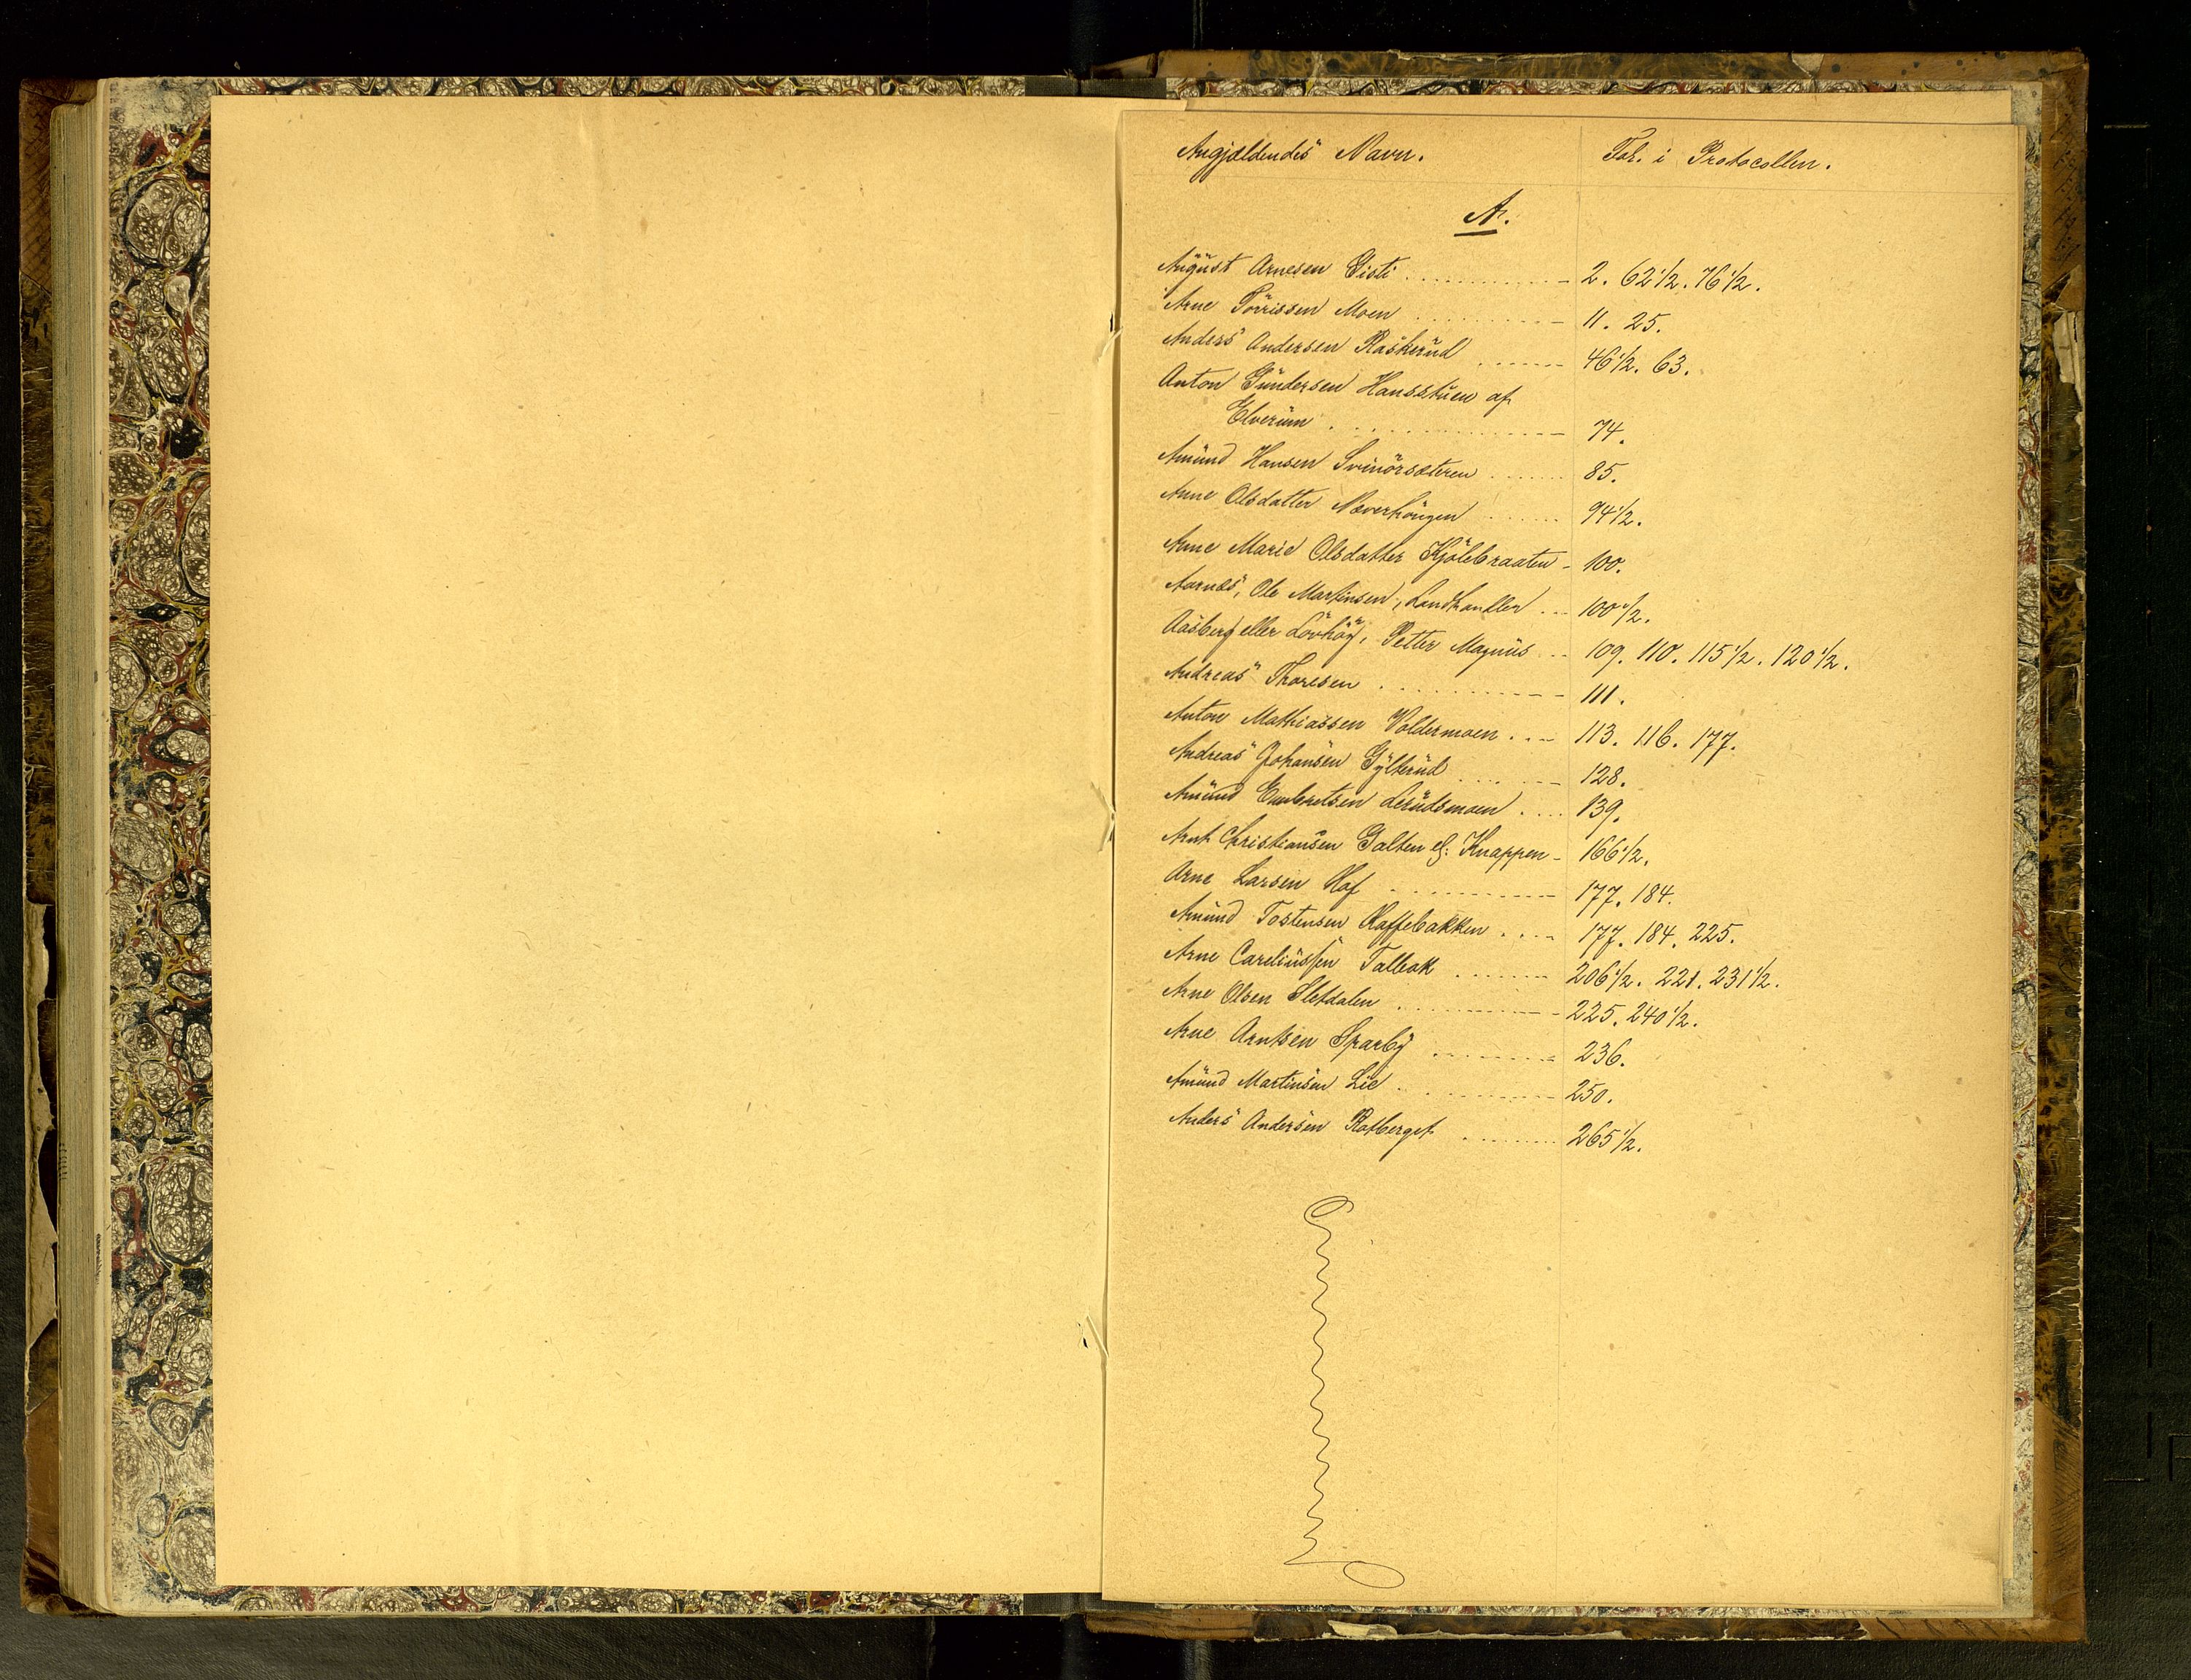 Angjældendes Navn. Fol. i Protocollen.
A.
August Arnesen Eisti 2. 62 1/2. 76 1/2.
Arne Törrissen Moen 11. 25.
Anders Andersen Raskerud 46 1/2. 63.
Anton Gundersen Hansstuen af
Elverum 74.
Amund Hansen Svinörsæteren 85.
Anne Olsdatter Næverhougen 94 1/2.
Anne Marie Olsdatter Kjölebraaten 100.
Aarnæs, Ole Martinsen, Landhandler 100 1/2.
Aasberg eller Lövhög, Petter Magnus 109. 110. 115 1/2. 120 1/2.
Andreas Thoresen 111.
Anton Mathiassen Voldermoen 113. 116. 177.
Andreas Johansen Gylterud 128.
Amund Embretsen Lerudsmoen 139.
Arnt Christiansen Galten el: Knappen 166 1/2.
Arne Larsen Hof 177. 184.
Amund Tostensen Kaffebakken 177. 184. 225.
Arne Careliussen Talbak 206 1/2. 221. 231 1/2.
Arne Olsen Sletdalen 225. 240 1/2.
Arne Arntsen Sparby 236.
Amund Martinsen Lie 250.
Anders Andersen Rotberget 265 1/2.